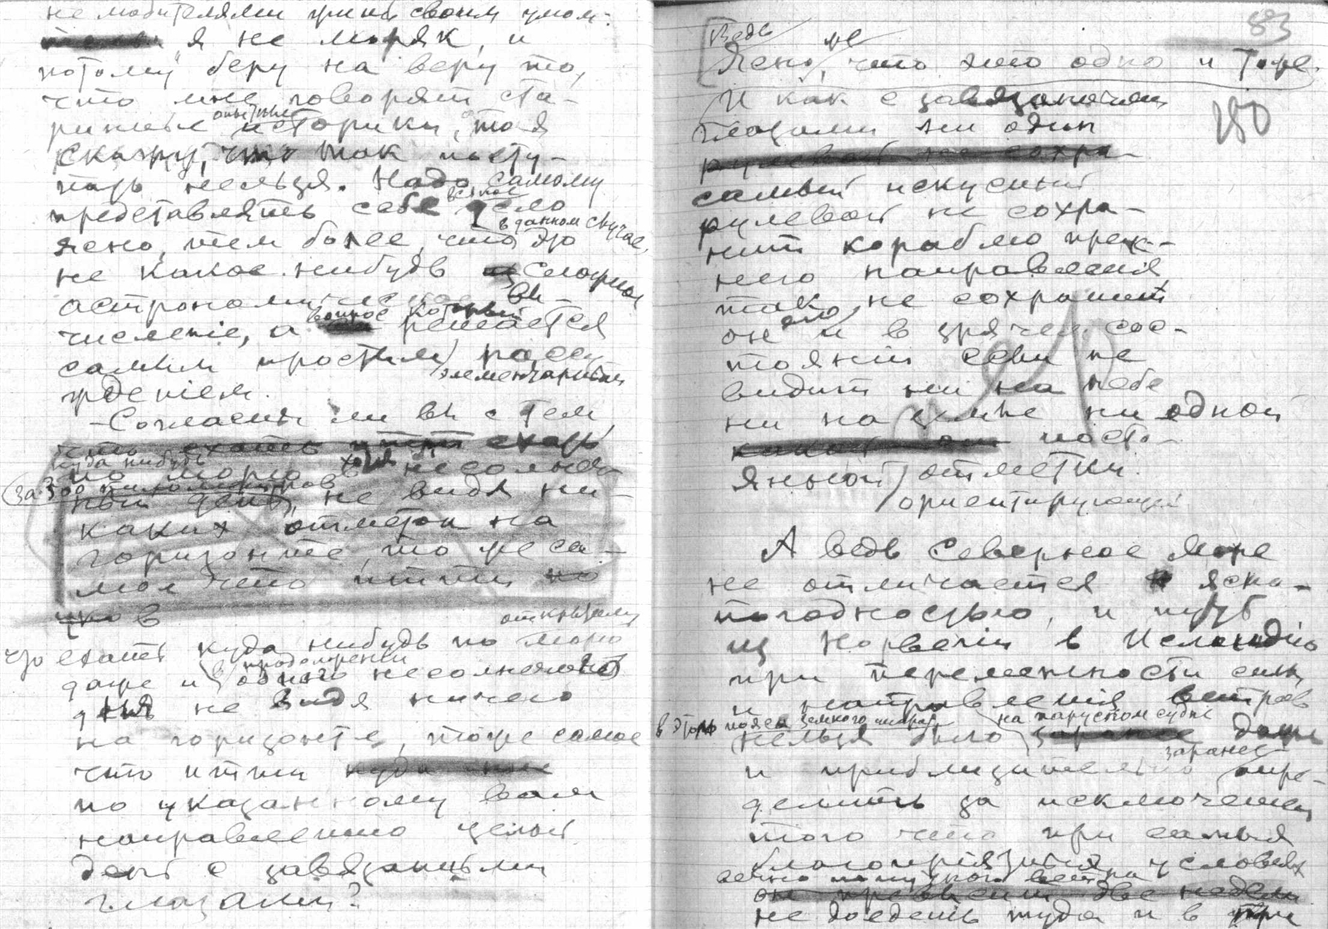 не любителями жить своим умом.
я не моряк, и
потому беру на веру то,
что мне говорят ста-
ринные опытные историки, то я
скажу, что так посту-
пать нельзя. Надо самому
представлять себе всякое дело
ясно, тем более, что в данном случае это
не какое нибудь сложное
астрономическое вы-
числение, а вопрос который решается
самым простым элементарным разсу-
ждением.
– Согласны ли вы с тем,
что ехать
по морю куда нибудь хотя несолнеч-
за 300 километров
ный день, не видя ни-
каких отметок на
горизонте, то же са-
мое что итти по
что ехать куда нибудь по открытому морю
даже и в продолжении одного несолнечного
дня не видя ничего
на горизонте, тоже самое
что итти
по указанному вам
направлению целый
день с завязанными
глазами?
83
180
Ведь
Ясно, что это одно и тоже.
И как с завязанными
глазами ни один
рулевой не сохра-
самый искусный
рулевой не сохра-
нит кораблю преж-
него направления,
так не сохранит
он его и в зрячем сос-
тоянии если не
видит ни на небе
ни на земле ни одной
посто-
янной отметки.
ориентирующей
А ведь Северное море
не отличается ясно-
погодностью, и путь
из Норвегии в Исландию
при переменности силы
и направления ветров
в этом поясе земного шара на парусном судне
нельзя было даже
заранее
и приблизительно опре-
делить за исключением
того что при самых
благоприятных условиях
не доедешь туда и в три